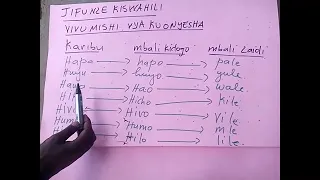 JIFUNZE KISWAHILI
VIVUMISHI VYA KUONYESHA
Karibu mbali kidogo mbali zaidi
Hapa → hapo → pale
Huyu → huyo → yule
→ Hao → wale
→ Hicho → kile
Hivi → Hivo → vile
Humu → Humo → mle
→ Hilo → lile